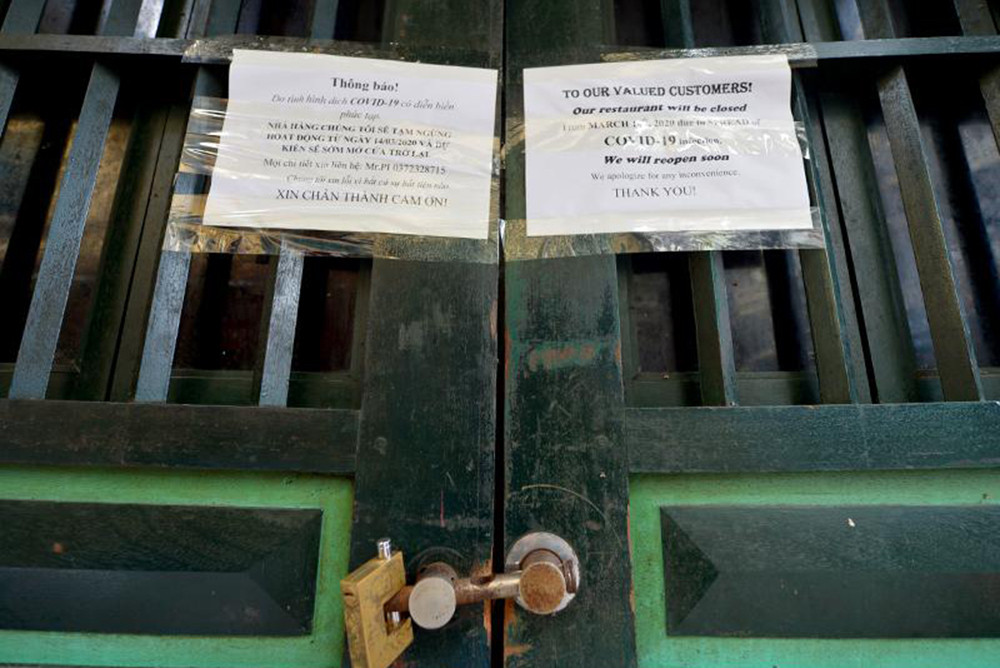 Thông báo!
Do tình hình dịch COVID-19 có diễn biến
phức tạp.
NHÀ HÀNG CHÚNG TÔI SẼ TẠM NGỪNG
HOẠT ĐỘNG TỪ NGÀY 14/03/2020 VÀ DỰ
KIẾN SẼ SỚM MỞ CỬA TRỞ LẠI.
Mọi chi tiết xin liên hệ: Mr.PI 0372328715
Chúng tôi xin lỗi vì bất cứ sự bất tiện nào.
XIN CHÂN THÀNH CẢM ƠN!
TO OUR VALUED CUSTOMERS!
Our restaurant will be closed
From MARCH 2020 due to SPREAD of
COVID-19 infection.
We will reopen soon
We apologize for any inconvenience.
THANK YOU!